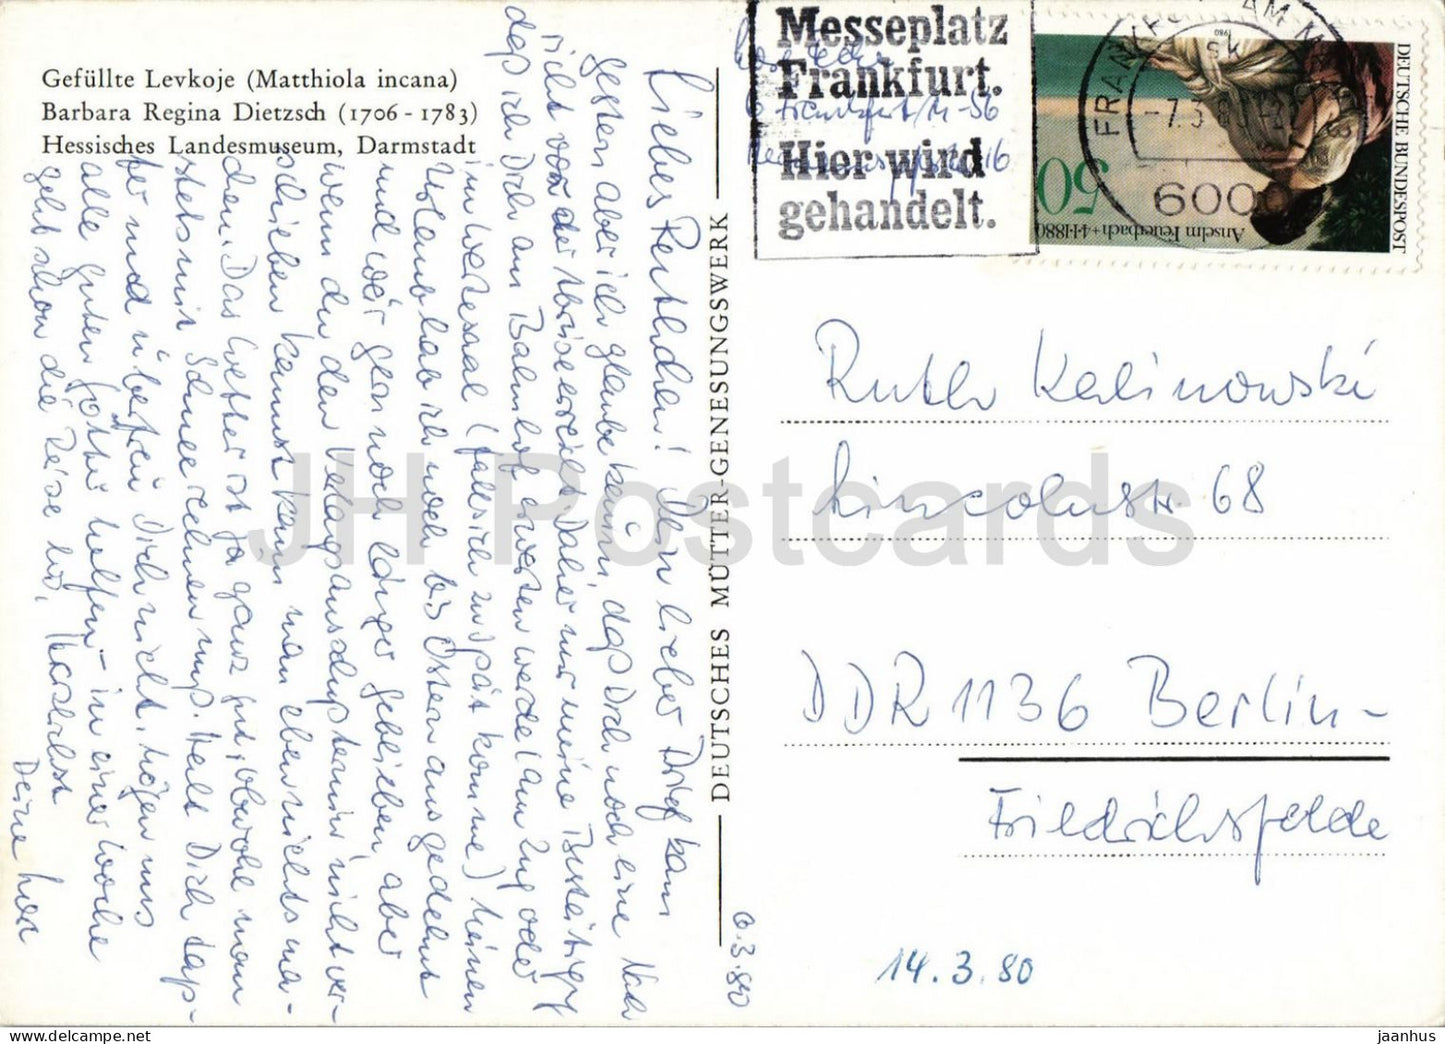 Gefüllte Levkoje (Matthiola incana)
Barbara Regina Dietzsch (1706 - 1783)
Hessisches Landesmuseum, Darmstadt
Liebes Ruthchen! Dein lieber Brief kam
gestern aber ich glaube kaum, daß Dich noch eine Nach
richt vor der Abreise erreicht. Daher nur meine Bestätigg
daß ich Dich am Bahnhof erwarten werde (am Zug oder
im Wartesaal (falls ich zu spät komme) Meinen
Urlaub hab ich noch bis Ostern ausgedehnt
und wär gern noch länger geblieben, aber
wenn du den Verlagsausschußtermin nicht ver-
schieben kannst kann man eben nichts ma-
chen. Das Wetter ist ja ganz gut, obwohl man
stets mit Schnee rechnen muß. Halt Dich tap-
fer und übertreib Dich nicht, mögen uns
alle guten Götter helfen - in einer Woche
geht schon die Reise los, Herzlichst
Deine
6.3.80
DEUTSCHES MÜTTER-GENESUNGSWERK
Messeplatz
Frankfurt.
Hier wird
gehandelt.
6 Frankfurt/M-56
16
FRANKFURT AM MAIN
-7.3.80-
6000
DEUTSCHE BUNDESPOST
50
Anselm Feuerbach + 4·1·1880
1980
Ruth Kalinowski
Lincolnstr. 68
DDR 1136 Berlin-
Friedrichsfelde
14.3.80
JH Postcards
jaanhus - delcampe.net